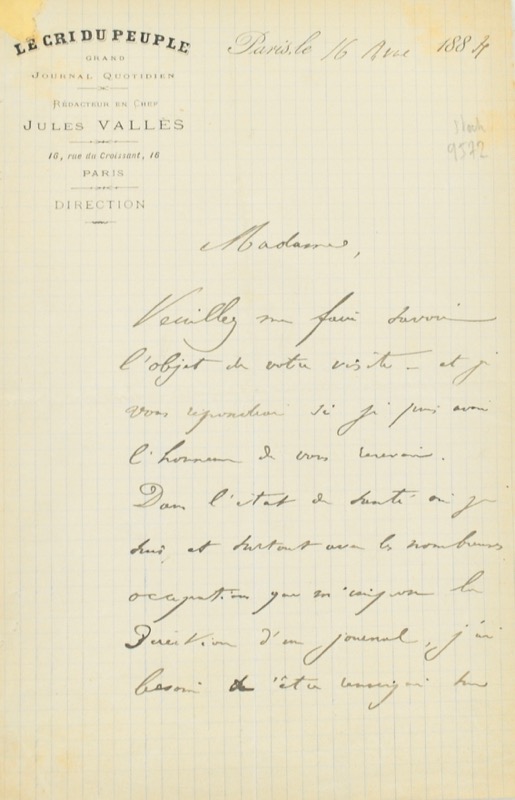 LE CRI DU PEUPLE
GRAND
JOURNAL QUOTIDIEN
RÉDACTEUR EN CHEF
JULES VALLÈS
16, rue du Croissant, 16
PARIS
DIRECTION
Paris, le 16 1884
9572
Madame,
Veuillez me faire savoir
l'objet de votre visite – et je
vous répondrai si je puis avoir
l'honneur de vous recevoir.
Dans l'état de santé où je
suis, et surtout avec les nombreuses
occupations que m'impose la
Direction d'un journal, j'ai
besoin d'être renseigné sur